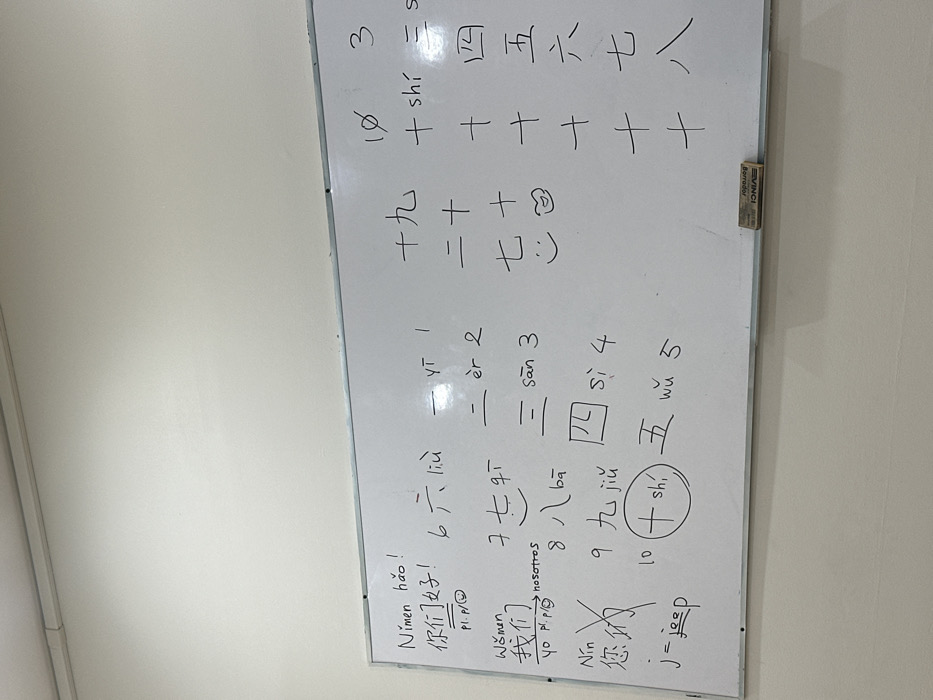 Nímen hǎo!
你们好!
pl. p/
Wǒmen
我们
yo pl. p/ → nosotros
Nín
您们
j = jeep
6 六 liù
7 七 qī
8 八 bā
9 九 jiǔ
10 十 shí
一 yī 1
二 èr 2
三 sān 3
四 sì 4
五 wǔ 5
十九
二十
七十
10 3
十 shí 三
十 四
十 五
十 六
十 七
十 八
VINCI
Borrador